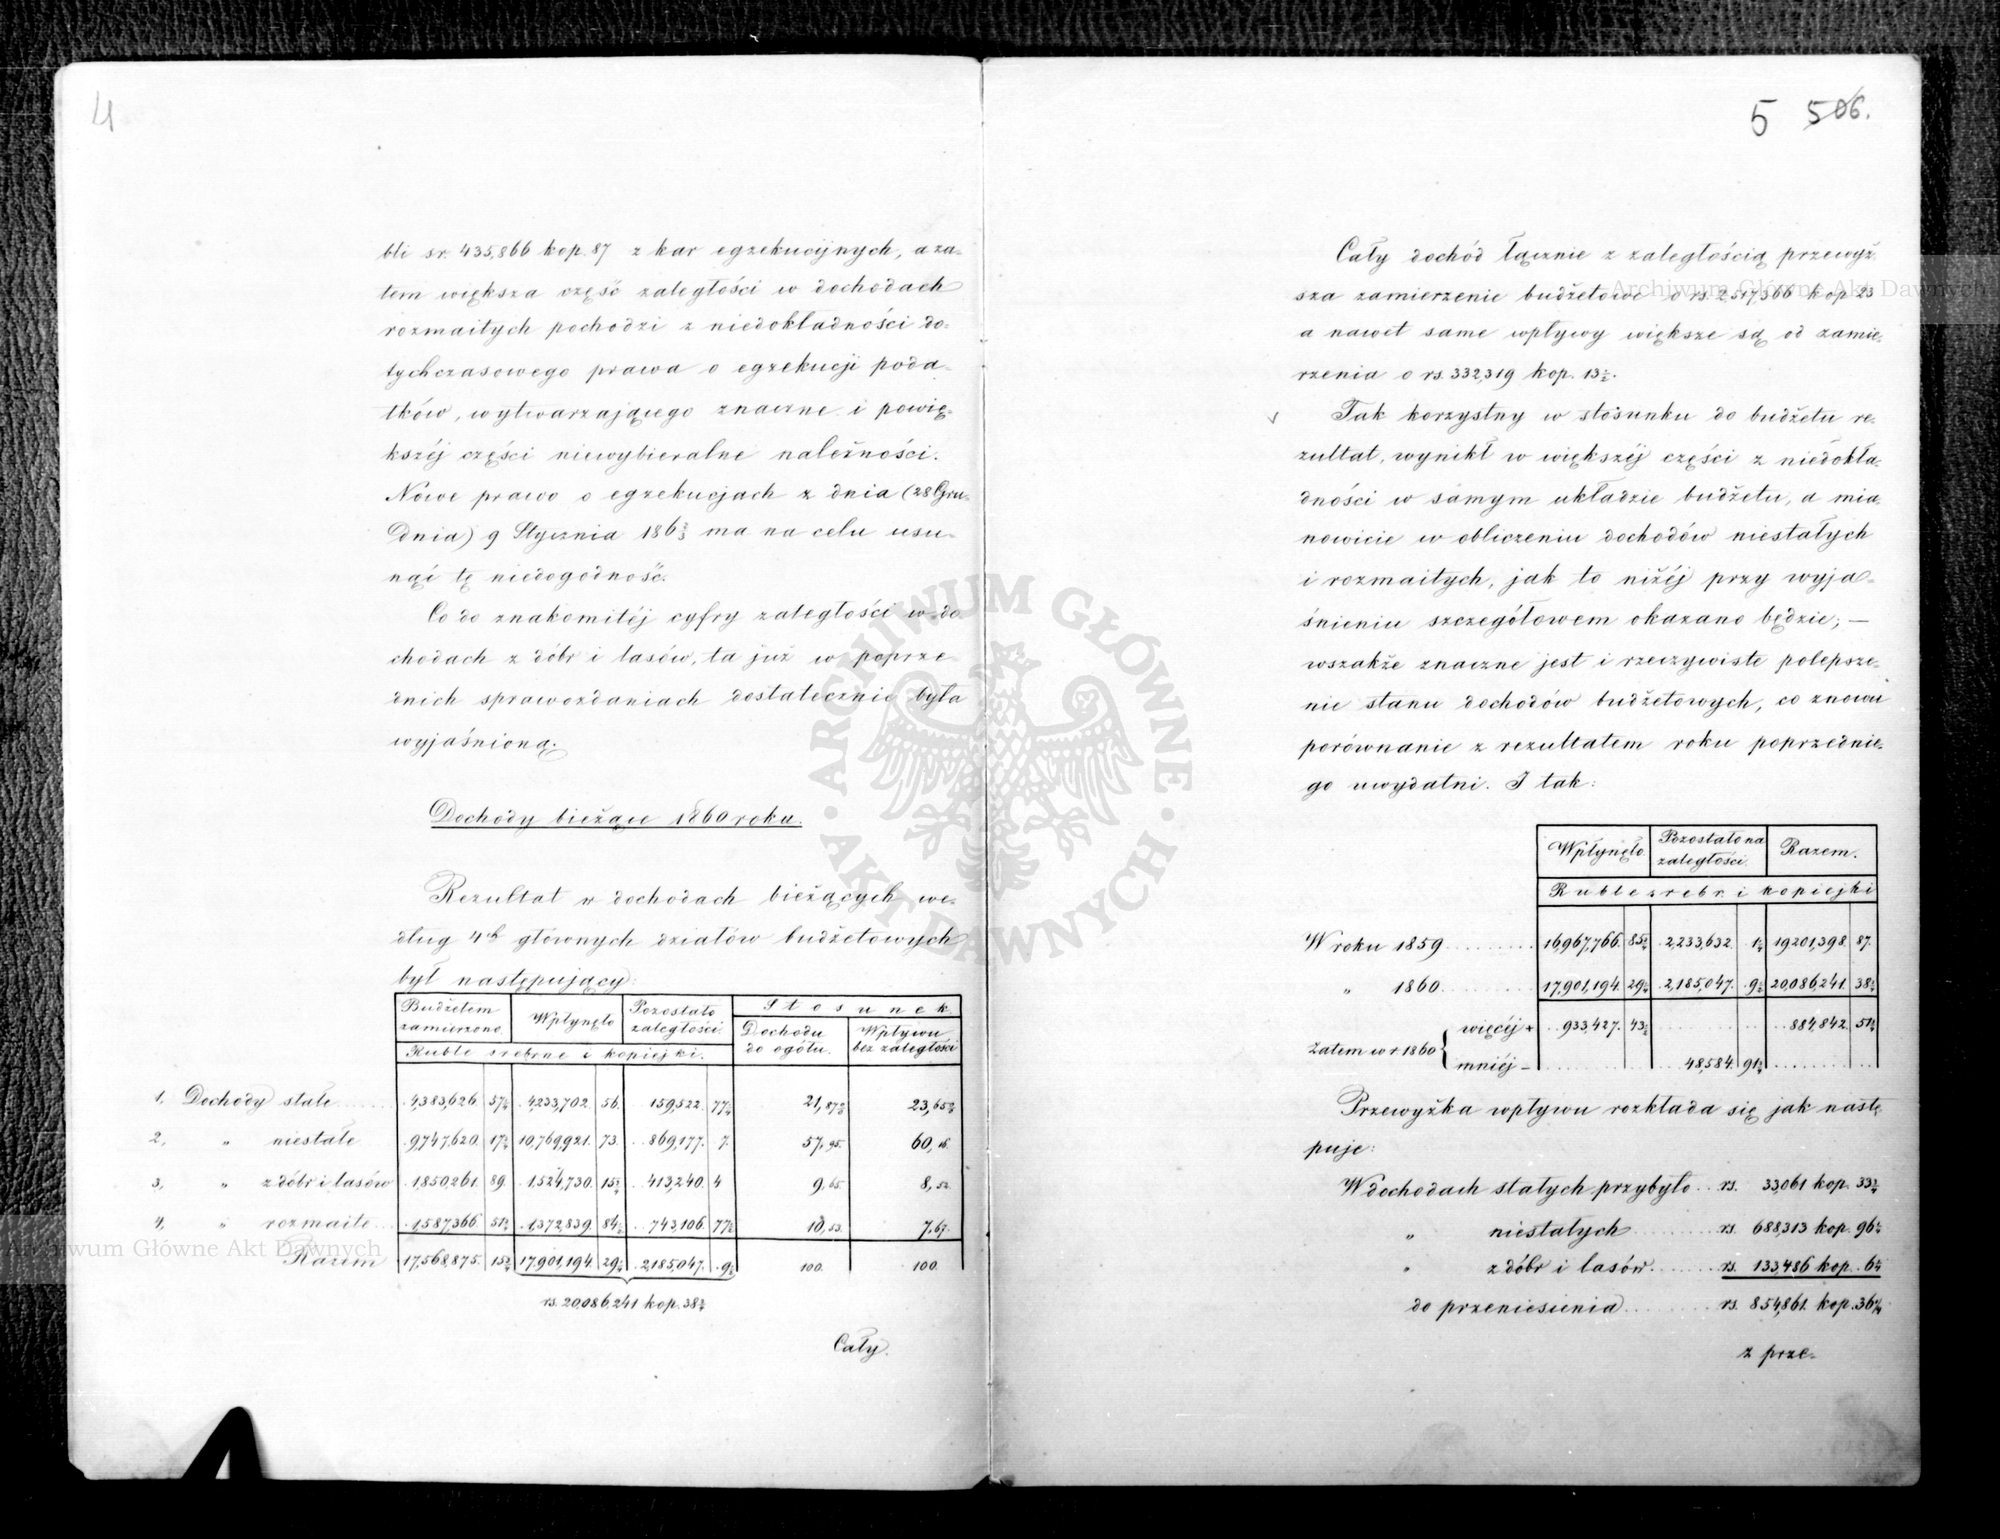 4
bli sr. 435,866 kop. 87 z kar egzekucyjnych, a za-
tem większa część zaległości w dochodach
rozmaitych pochodzi z niedokładności do-
tychczasowego prawa o egzekucji poda-
tków, wytwarzającego znaczne i powię-
kszéj części niewybieralne należności.
Nowe prawo o egzekucjach z dnia (28 Gru-
dnia) 9 Stycznia 186⅔ ma na celu usu-
nąć tę niedogodność.
Co do znakomitéj cyfry zaległości w do
chodach z dóbr i lasów, ta już w poprze-
dnich sprawozdaniach dostatecznie była
wyjaśnioną.
Dochody bieżące 1860 roku.
Rezultat w dochodach bieżących we-
dług 4ch głównych działów budżetowych
był następujący:
Budżetem zamierzono Wpłynęło Pozostało zaległości Stosunek
Dochodu do ogółu. Wpływu bez zaległości
Ruble srebrne i kopiejki.
1, Dochody stałe 4,383,626. 57½ 4,233,702. 56. 159,522. 77½ 21,87 23,65
2, " niestałe 9,747,620. 17½ 10,769,921. 73. 869,177. 7. 57,95. 60,16.
3, " z dóbr i lasów 1,850,261. 89 1,524,730. 15 413,240. 4 9,65. 8,52.
4, " rozmaite 1,587,366. 51 1,372,839. 84 743,106. 77½ 10,53. 7,67.
Razem 17,568,875. 15 17,901,194. 29 2,185,047. 9 100. 100.
rs. 20,086,241 kop. 38
Cały.
5 506.
Cały dochód łącznie z zaległością przewyż
sza zamierzenie budżetowe o rs. 2,517,366 kop 23
a nawet same wpływy większe są od zamie-
rzenia o rs. 332,319 kop. 13½.
Tak korzystny w stosunku do budżetu re-
zultat, wynikł w większéj części z niedokła-
dności w samym układzie budżetu, a mia-
nowicie w obliczeniu dochodów niestałych
i rozmaitych, jak to niżéj przy wyja-
śnieniu szczegółowem okazano będzie; —
wszakże znaczne jest i rzeczywiste polepsze-
nie stanu dochodów budżetowych, co znowu
porównanie z rezultatem roku poprzednie-
go uwydatni. I tak:
Wpłynęło Pozostało na zaległości Razem.
Ruble srebr i kopiejki
W roku 1859 16,967,766. 85 2,233,632. 1 19,201,398. 87.
" 1860. 17,901,194. 29 2,185,047. 9 20,086,241. 38
Zatem w r 1860 więcéj + 933,427. 43 884,842. 51
mniéj — 48,584. 91
Przewyżka wpływu rozkłada się jak nastę
puje:
W dochodach stałych przybyło rs. 33,061 kop. 33
" niestałych rs. 688,313 kop. 96
" z dóbr i lasów rs. 133,486 kop. 6
do przeniesienia rs. 854,861. kop. 36
z prze-
Archiwum Główne Akt Dawnych
Archiwum Główne Akt Dawnych
ARCHIWUM GŁÓWNE · AKT DAWNYCH ·